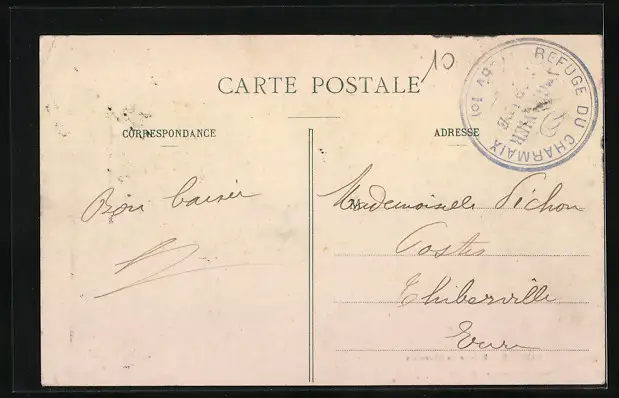 10
CARTE POSTALE
REFUGE DU CHARMAIX
CORRESPONDANCE
ADRESSE
Bon baiser
Mademoiselle Pichon
Postes
Thiberville
Eure